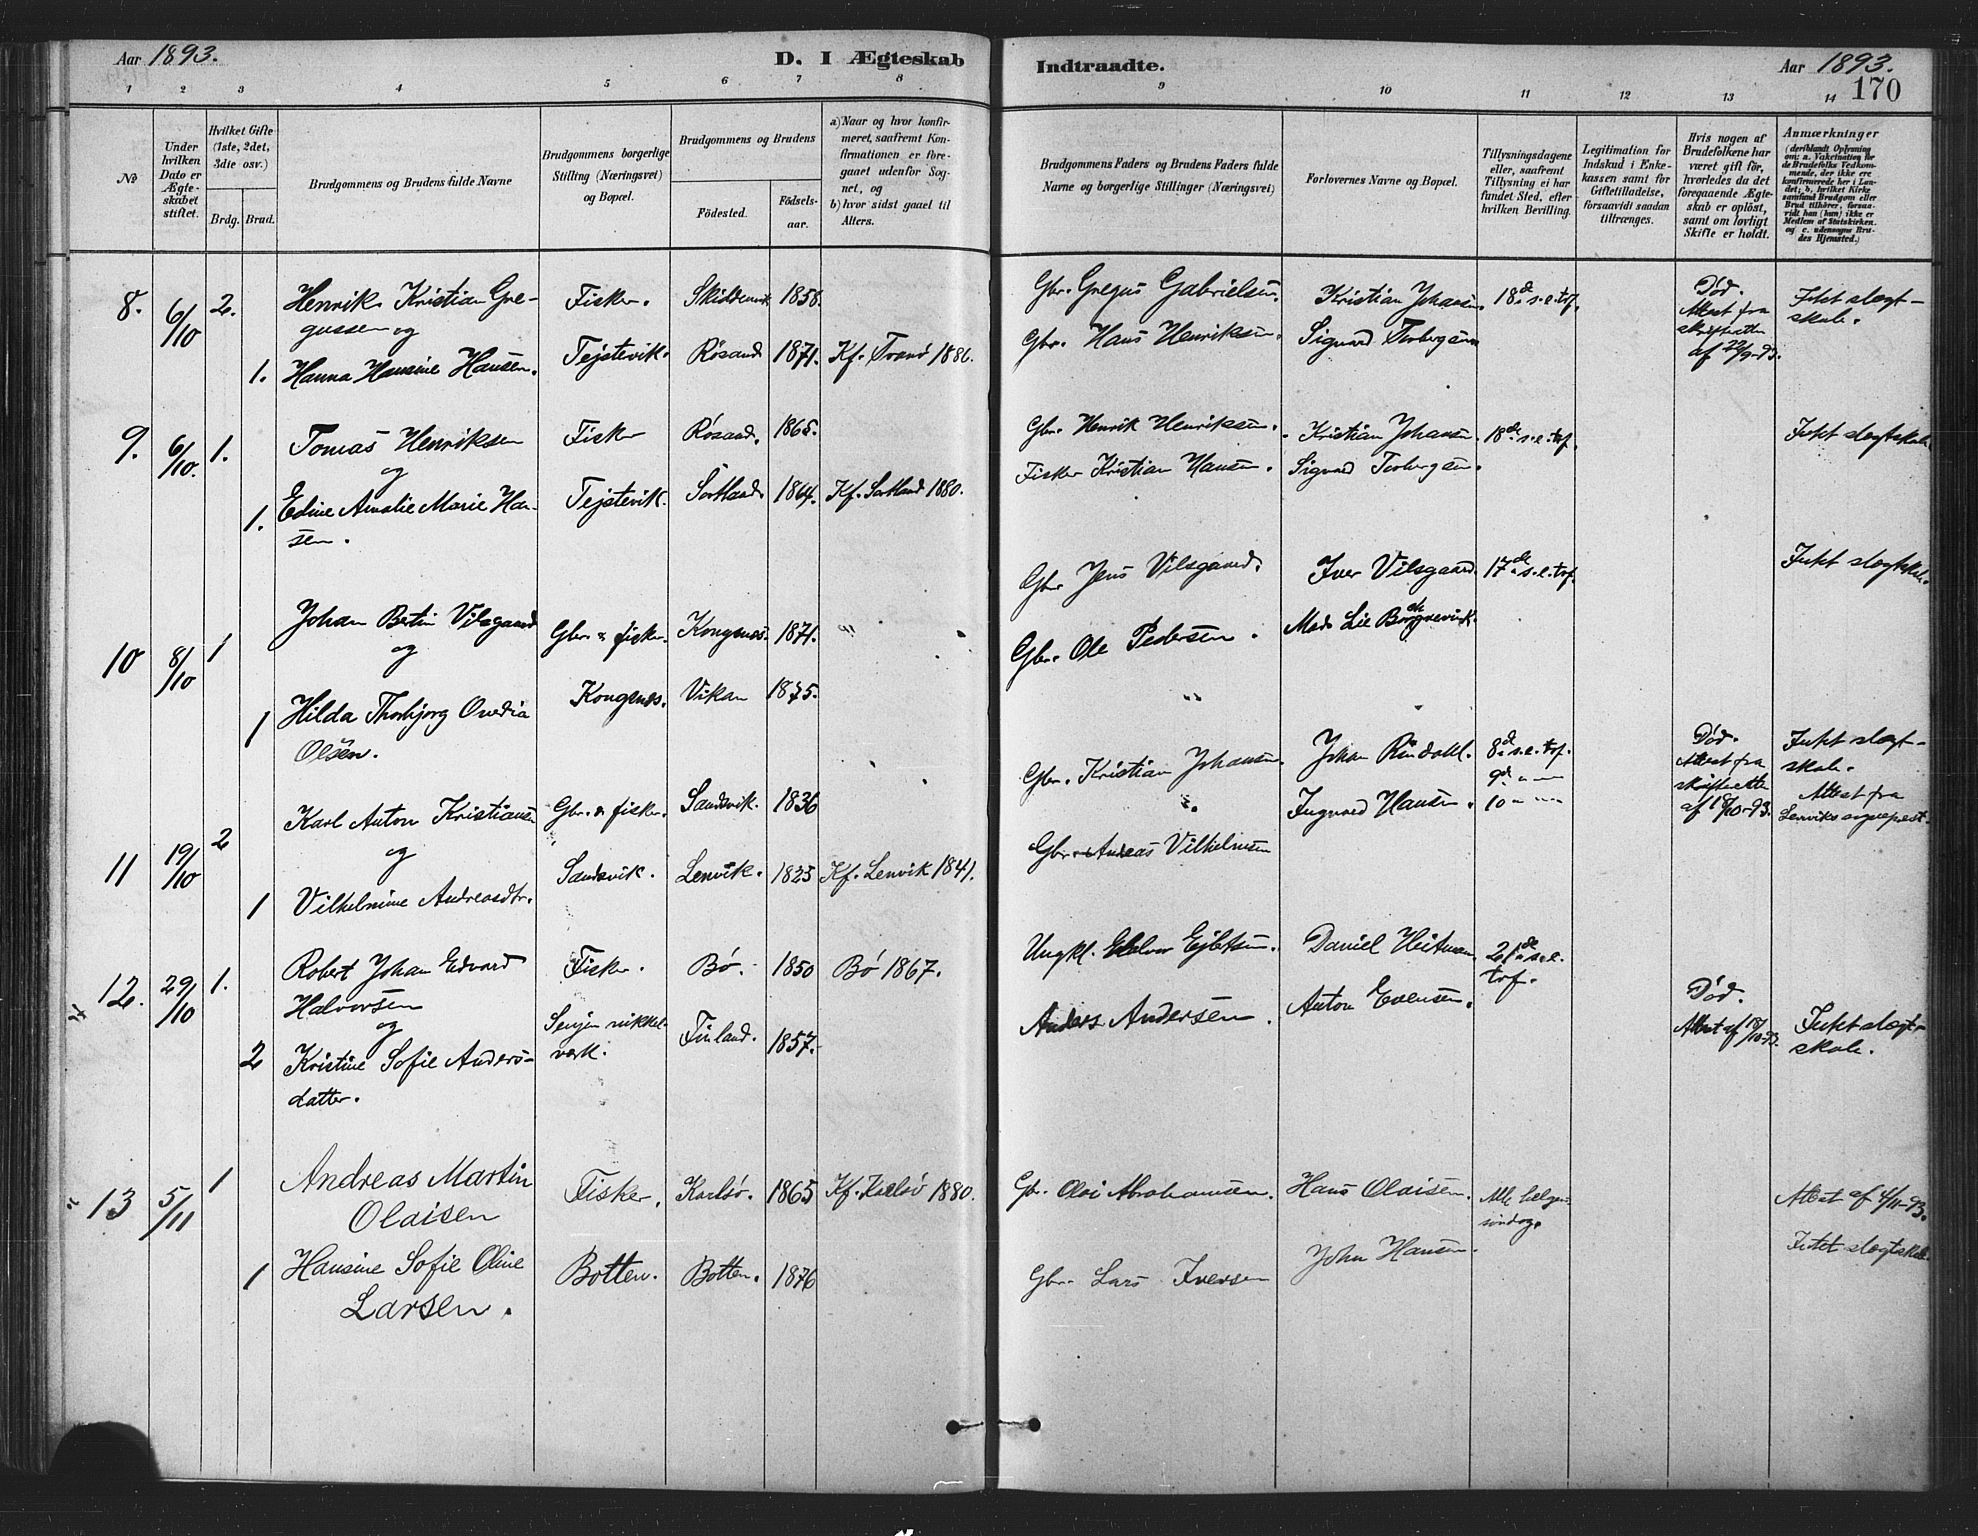 Aar 1893.
D. I Ægteskab
Indtraadte.
Aar 1893.
170
1 2 3 4 5 6 7 8 9 10 11 12 13 14
No
Under
hvilken
Dato er
Ægte-
skabet
stiftet.
Hvilket Gifte
(1ste, 2det,
3die osv.)
Brdg. Brud.
Brudgommens og Brudens fulde Navne
Brudgommens borgerlige
Stilling (Næringsvei)
og Bopæl.
Brudgommens og Brudens
Födested.
Födsels-
aar.
a) Naar og hvor konfir-
meret, saafremt Kon-
firmationen er fore-
gaaet udenfor Sog-
net, og
b) hvor sidst gaaet til
Alters.
Brudgommens Faders og Brudens Faders fulde
Navne og borgerlige Stillinger (Næringsvei)
Forlovernes Navne og Bopæl.
Tillysningsdagene
eller, saafremt
Tillysning ei har
fundet Sted, efter
hvilken Bevilling.
Legitimation for
Indskud i Enke-
kassen samt for
Giftetilladelse,
forsaavidt saadan
tiltrænges.
Hvis nogen af
Brudefolkene har
været gift för,
hvorledes da det
foregaaende Ægte-
skab er oplöst,
samt om lovligt
Skifte er holdt.
Anmærkninger
(deriblandt Oplysning
om: a. Vakcination for
de Brudefolks Vedkom-
mende, der ikke ere
konfirmerede her i Lan-
det; b. hvilket Kirke-
samfund Brudgom eller
Brud tilhörer, forsaa-
vidt han (hun) ikke er
Medlem af Statskirken.
og c. udensogns Bru-
des Hjemsted.)
8. 6/10 2. Henrik Kristian Gre-
gussen og
1. Hanna Hansine Hansen.
Fisker.
Tejstevik.
1856.
Røsand 1871. Kf. Tranø 1886.
Gbr. Gregus Gabrielsen.
Gbr. Hans Henriksen.
Kristian Johansen.
Sigvard Torbergsen
18de s.e.trf.
Død.
Attest fra
skifteretten
af 22/9-93.
Intet slægt-
skab.
9. 6/10. 1. Tomas Henriksen
og
1. Edine Amalie Marie Han-
sen.
Fisker
Tejstevik.
Røsand. 1865.
Sortland 1864. Kf. Sortland 1880.
Gbr. Henrik Henriksen.
Fisker Kristian Hansen.
Kristian Johansen
Sigvard Torbergsen.
18de s.e.trf.
Intet slægtskab.
10 8/10 1 Johan Bertin Vilsgaard
og
1 Hilda Thorbjorg Ovedia
Olsen.
Gbr. & fisker.
Kongsnes.
Kongsnes. 1871.
Vikan 1875.
Gbr Jens Vilsgaard.
Gbr. Ole Pedersen.
Iver Vilsgaard.
Mads Lie
17de s.e.trf.
Intet slægtskab.
11 19/10 2 Karl Anton Kristiansen
og
1 Vilhelmine Andreasdtr.
Gbr. & fisker.
Sandsvik.
Sandsvik. 1836
Lenvik. 1825 Kf. Lenvik 1841.
Gbr. Kristian Johansen.
Gbr. Andreas Vilhelmsen
Johan Rindahl.
Ingvard Hansen.
8de s.e.trf.
9de " — —
10 " " —
Død.
Attest fra
skifteretten
Intet slægt-
skab.
Attest fra
Lenviks sognepræst.
12. 29/10 1. Robert Johan Edvard
Halvorsen
og
2 Kristine Sofie Anders-
datter.
Fisker.
Senjen nikkel-
værk.
Bø. 1850 Bø 1867.
Finland. 1857.
Ungkl. Halvor Ejletsen.
Anders Andersen.
Daniel Heitman
Anton Evensen.
21de s.e.
trf.
Død.
Attest af
Intet slægt-
skab.
13 5/11 1 Andreas Martin
Olaisen
1 Hansine Sofie Oline
Larsen.
Fisker.
Botten.
Karlsø. 1865 Kf. Karlsø 1880.
Botten. 1876
Gbr. Olai Abrahamsen.
Gbr. Lars Iversen
Hans Olaisen.
John Hansen.
Alle helgen-
søndag.
Attest af 4/11-93.
Intet slægtskab.